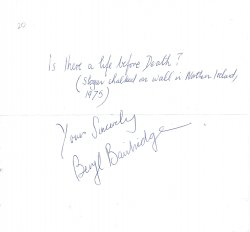 20
Is there a life before Death?
(Slogan chalked on wall in Northern Ireland,
1975)
Yours Sincerely
Beryl Bainbridge.